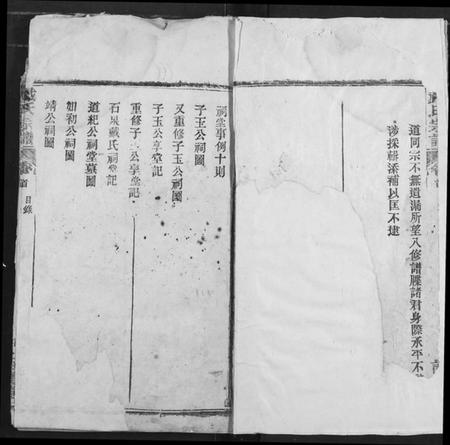 道同宗不無遺漏所望入修譜牒諸君身際承平不
涉採輯添補以匡不逮
祠堂事例十則
子玉公祠圖
又重修子玉公祠圖
子玉公享堂記
重修子 公享堂記
石泉戴氏祠堂記
道紀公祠堂墓圖
如初公祠圖
靖公祠圖
首 目錄